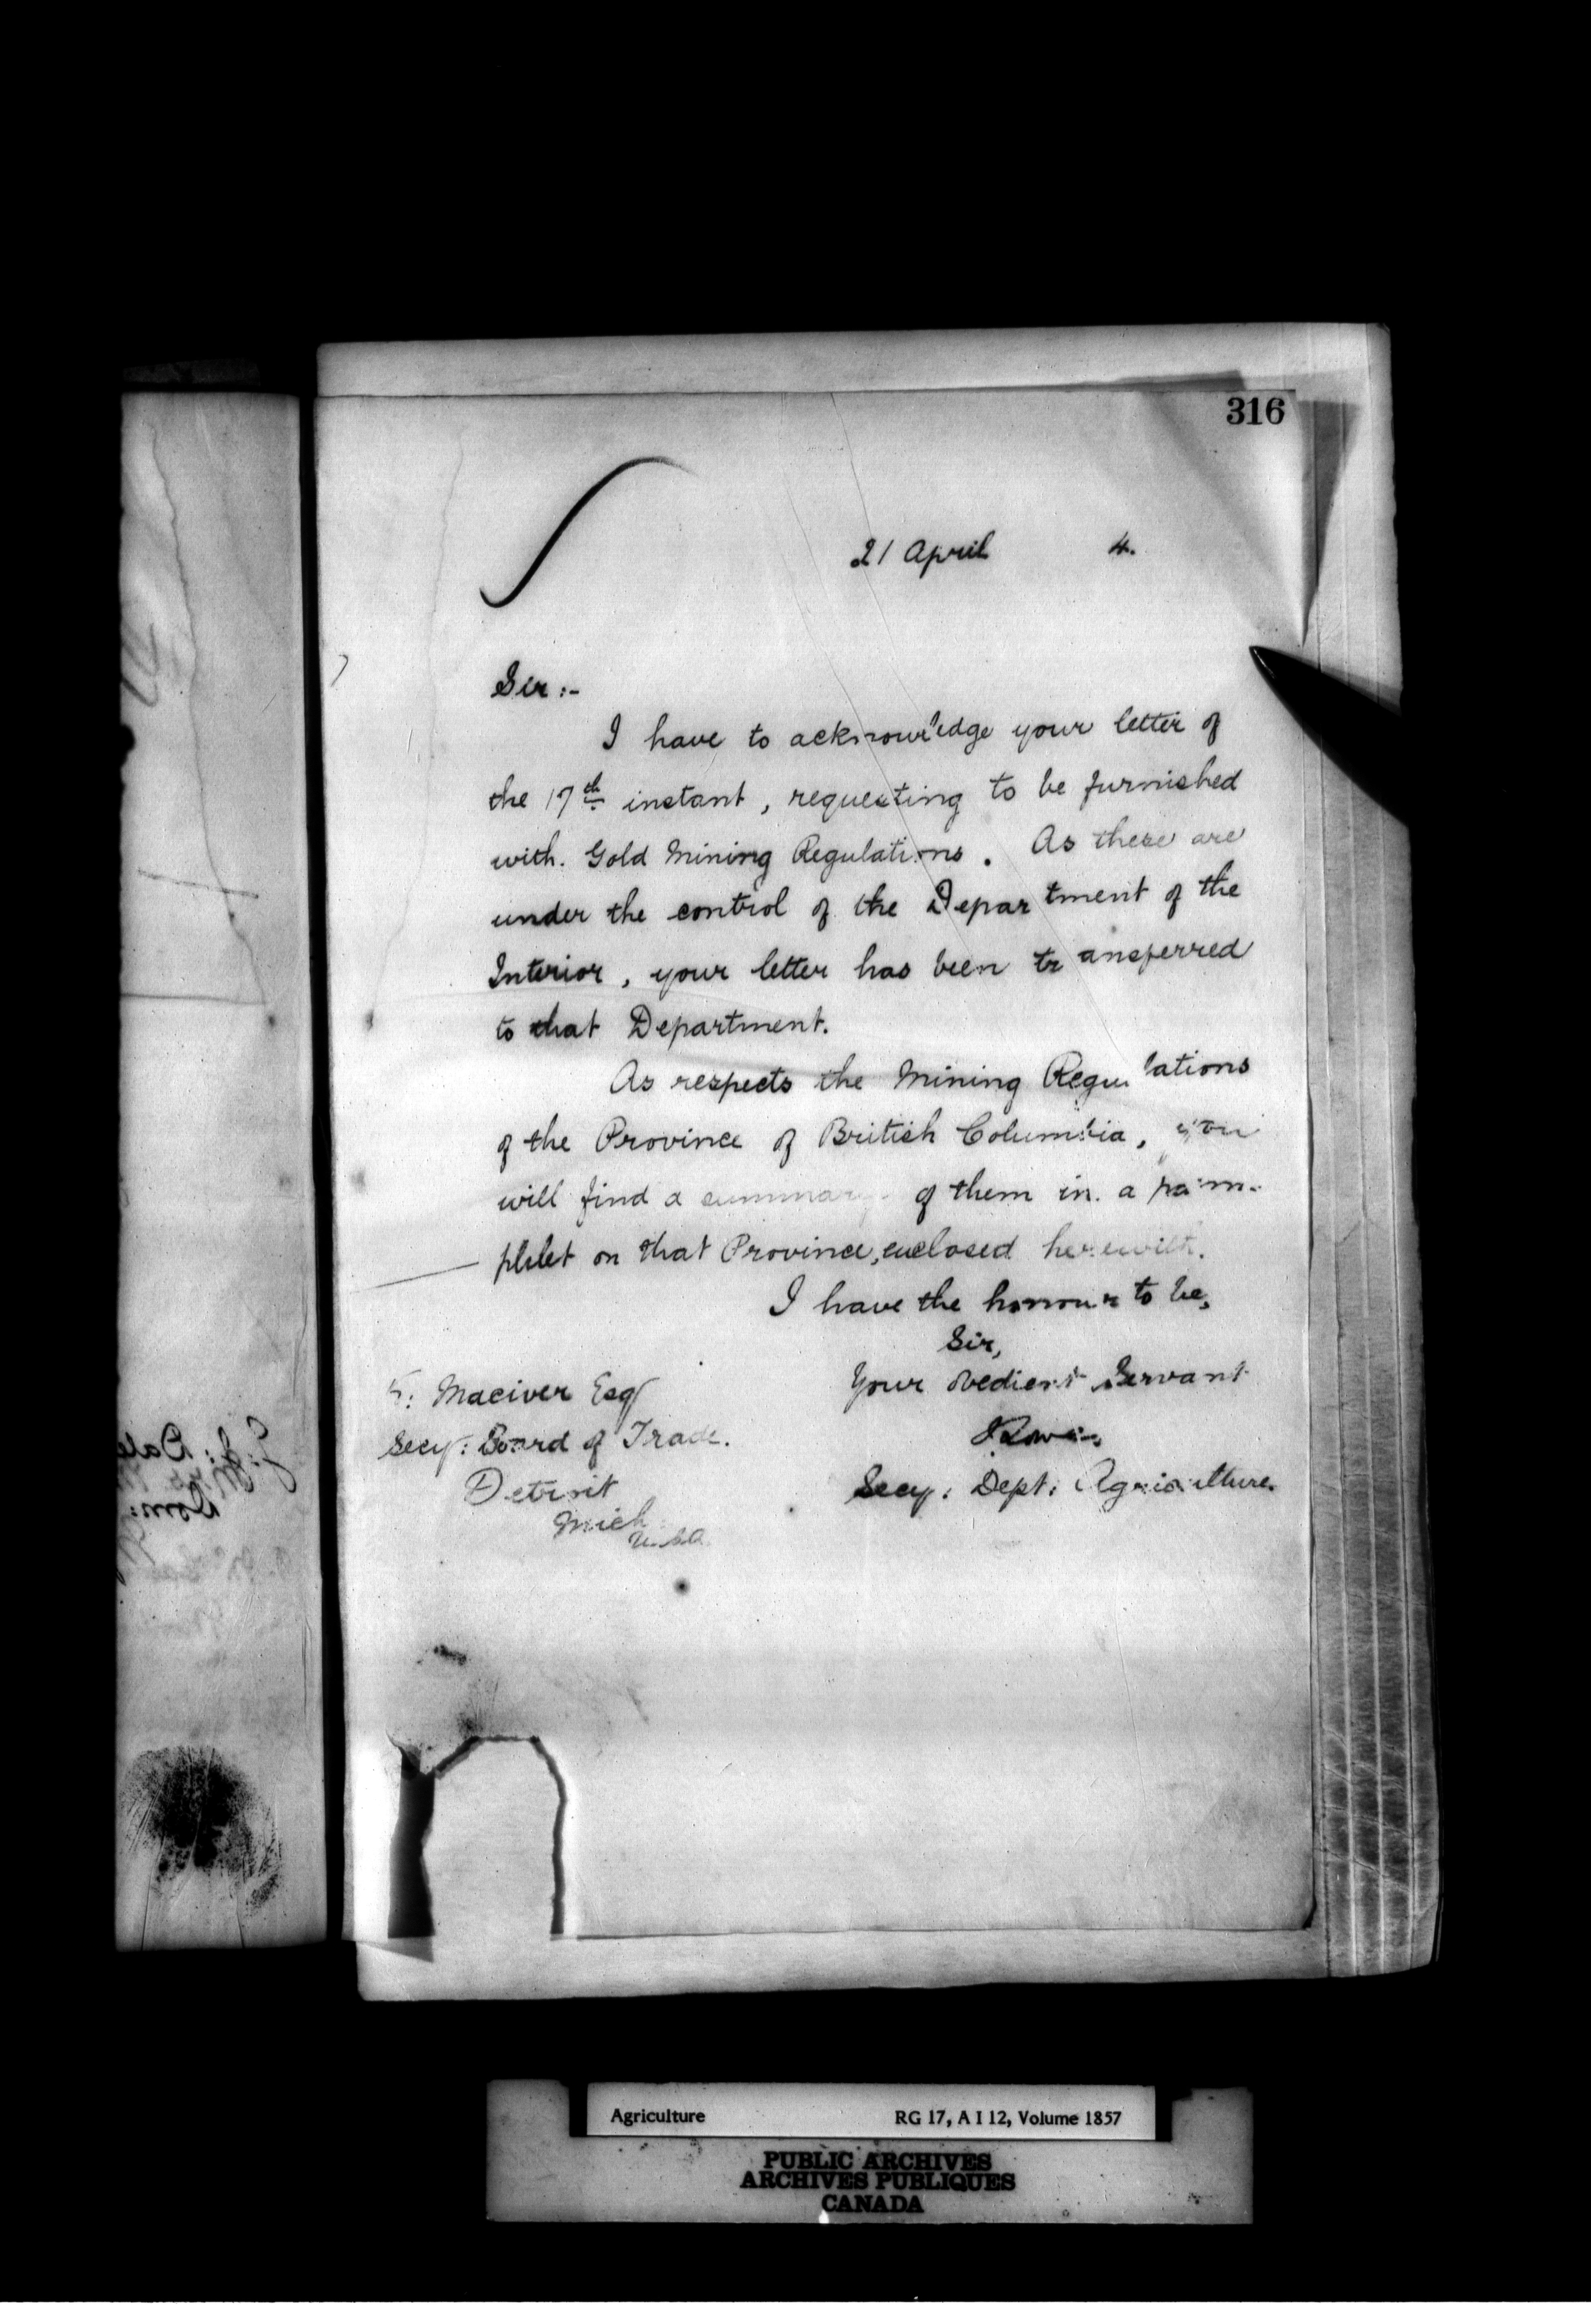 316
21 April 4.
Sir :-
I have to acknowledge your letter of
the 17th instant, requesting to be furnished
with Gold Mining Regulations. As these are
under the control of the Department of the
Interior, your letter has been transferred
to that Department.
As respects the Mining Regulations
of the Province of British Columbia, you
will find a summary of them in a pam-
phlet on that Province, enclosed herewith.
I have the honour to be,
Sir,
Your obedient Servant
Secy: Dept: Agriculture.
Maciver Esq
Secy: Board of Trade.
Detroit
Mich
U.S.A.
Agriculture RG 17, A I 12, Volume 1857
PUBLIC ARCHIVES
ARCHIVES PUBLIQUES
CANADA